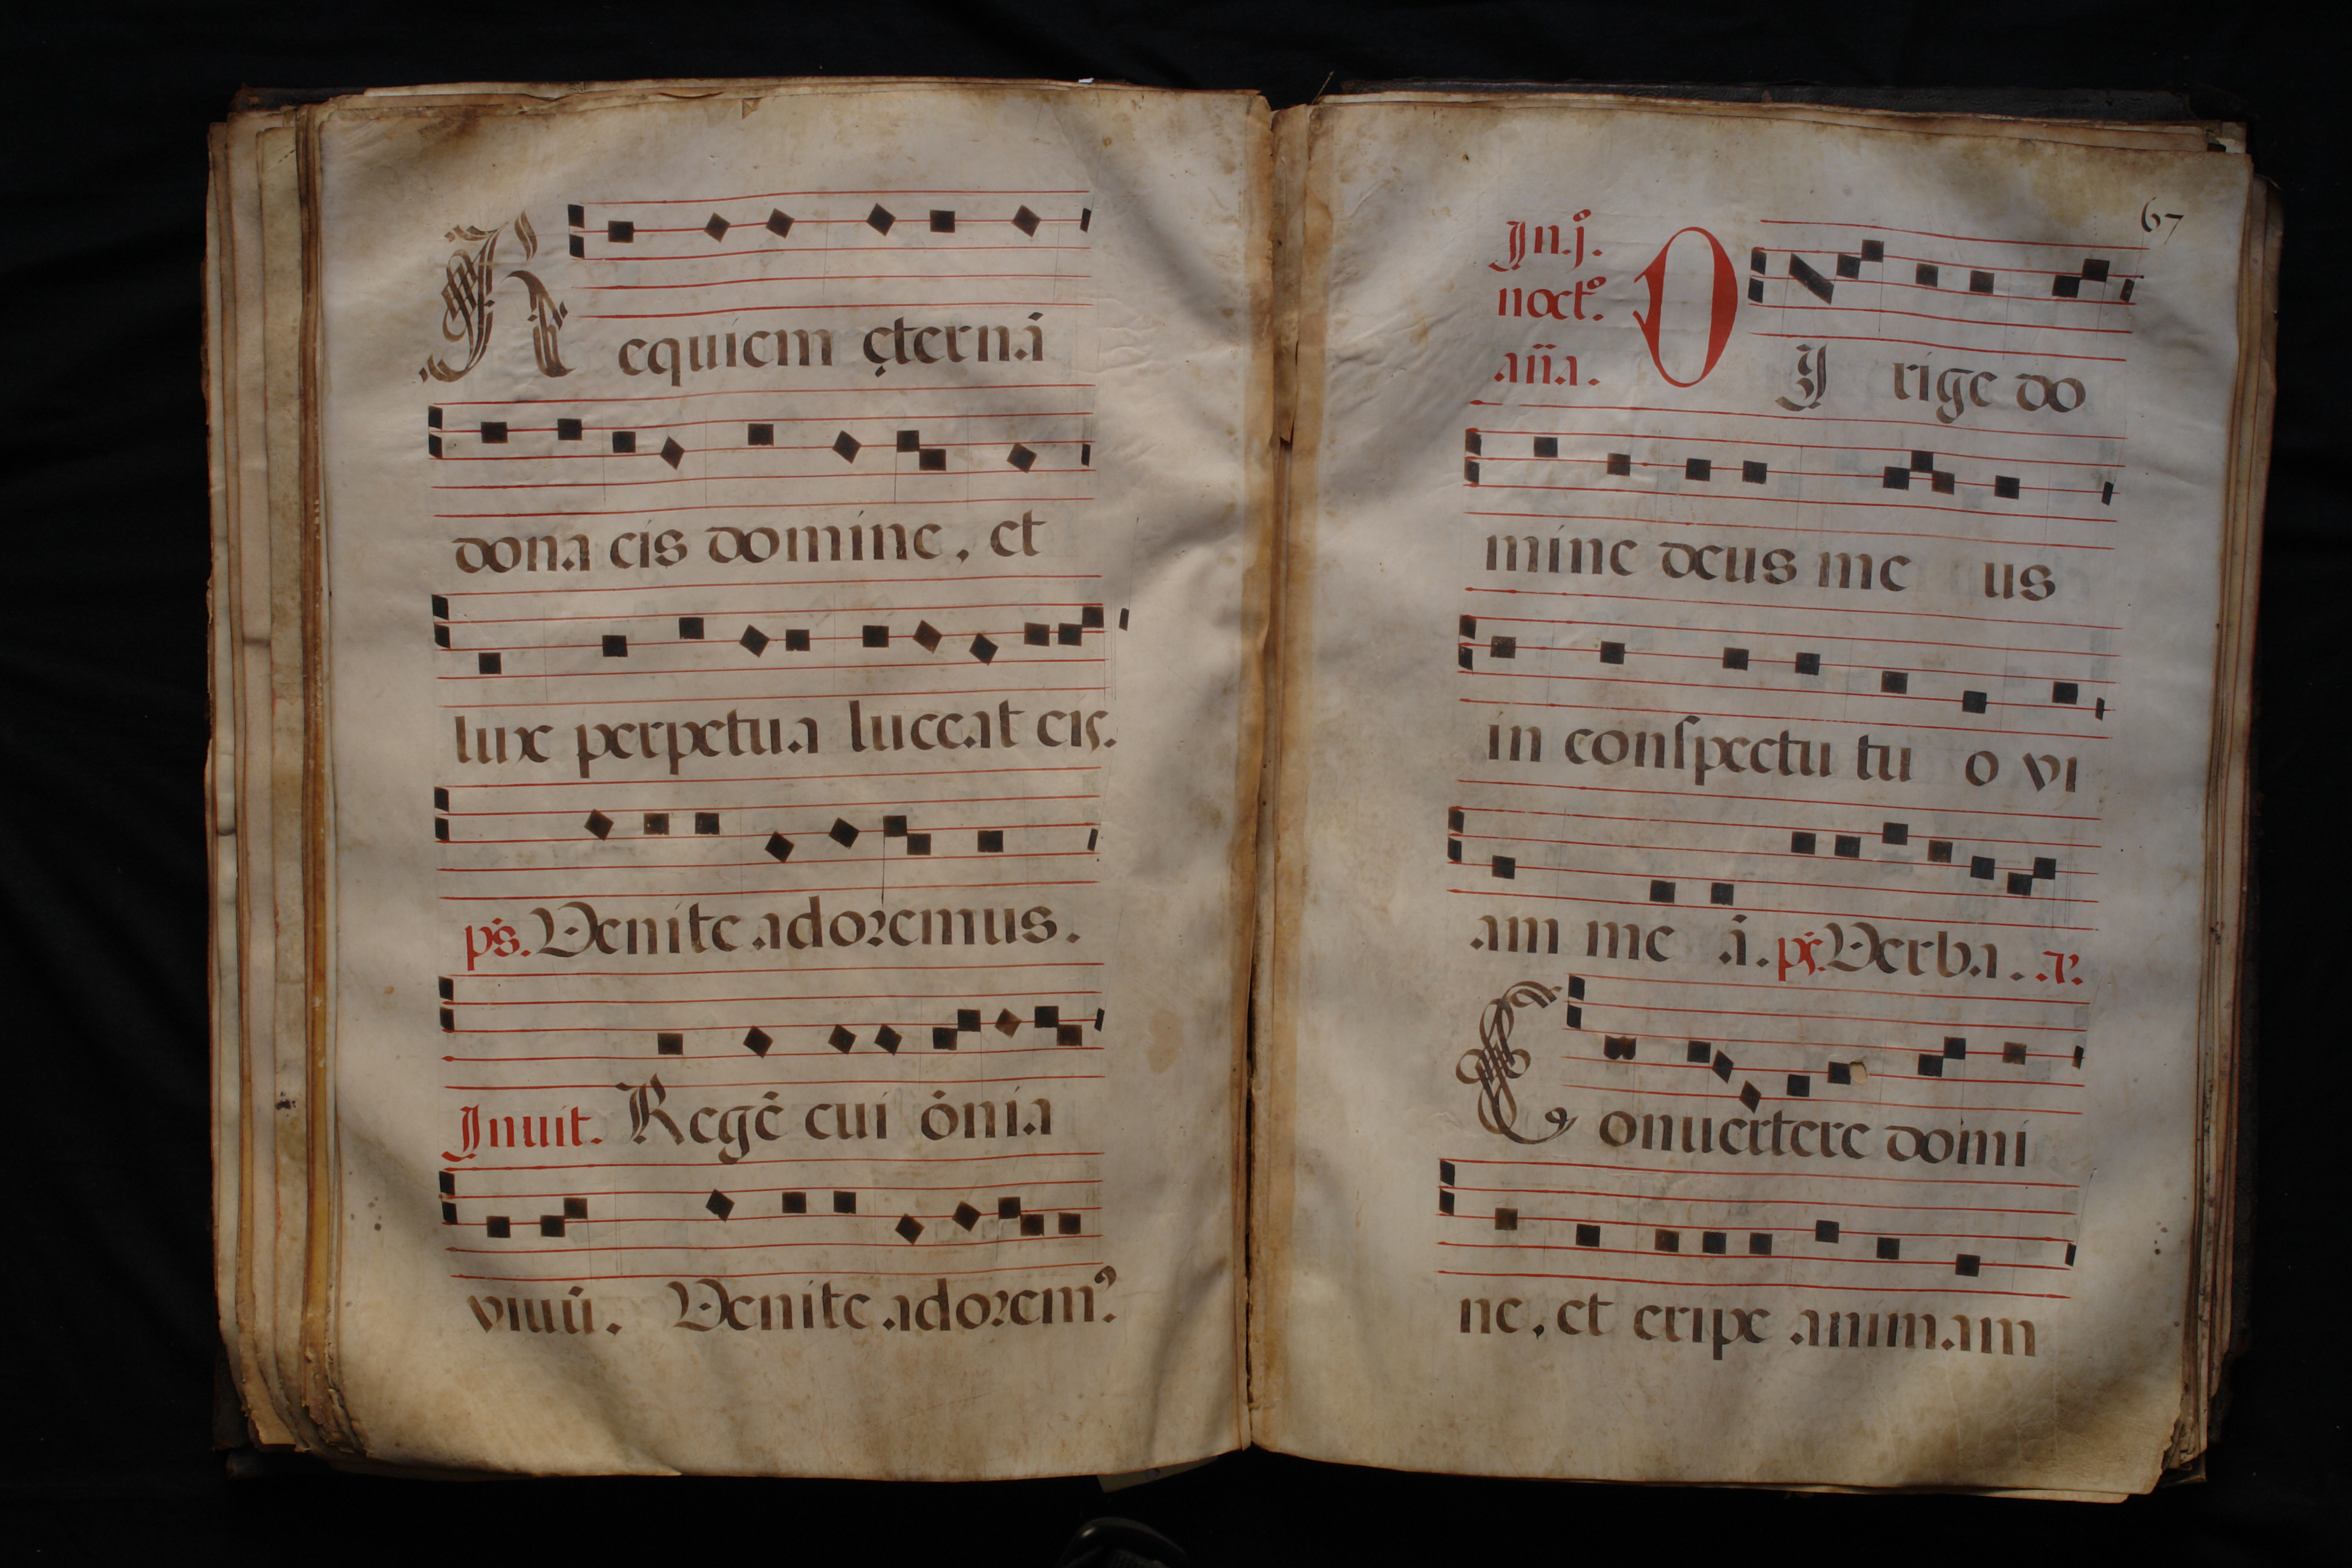 Requiem ęternā
dona eis domine, et
lux perpetua luceat eis.
ps. Venite adoremus.
Inuit. Regē cui ōnia
viuūt. Venite adorem9
67
In.j.
noct.
an̄a.
DI rige do
mine deus me us
in conſpectu tu o vi
am me ā. ps. Verba. a.
Conuertere domi
ne, et eripe animam